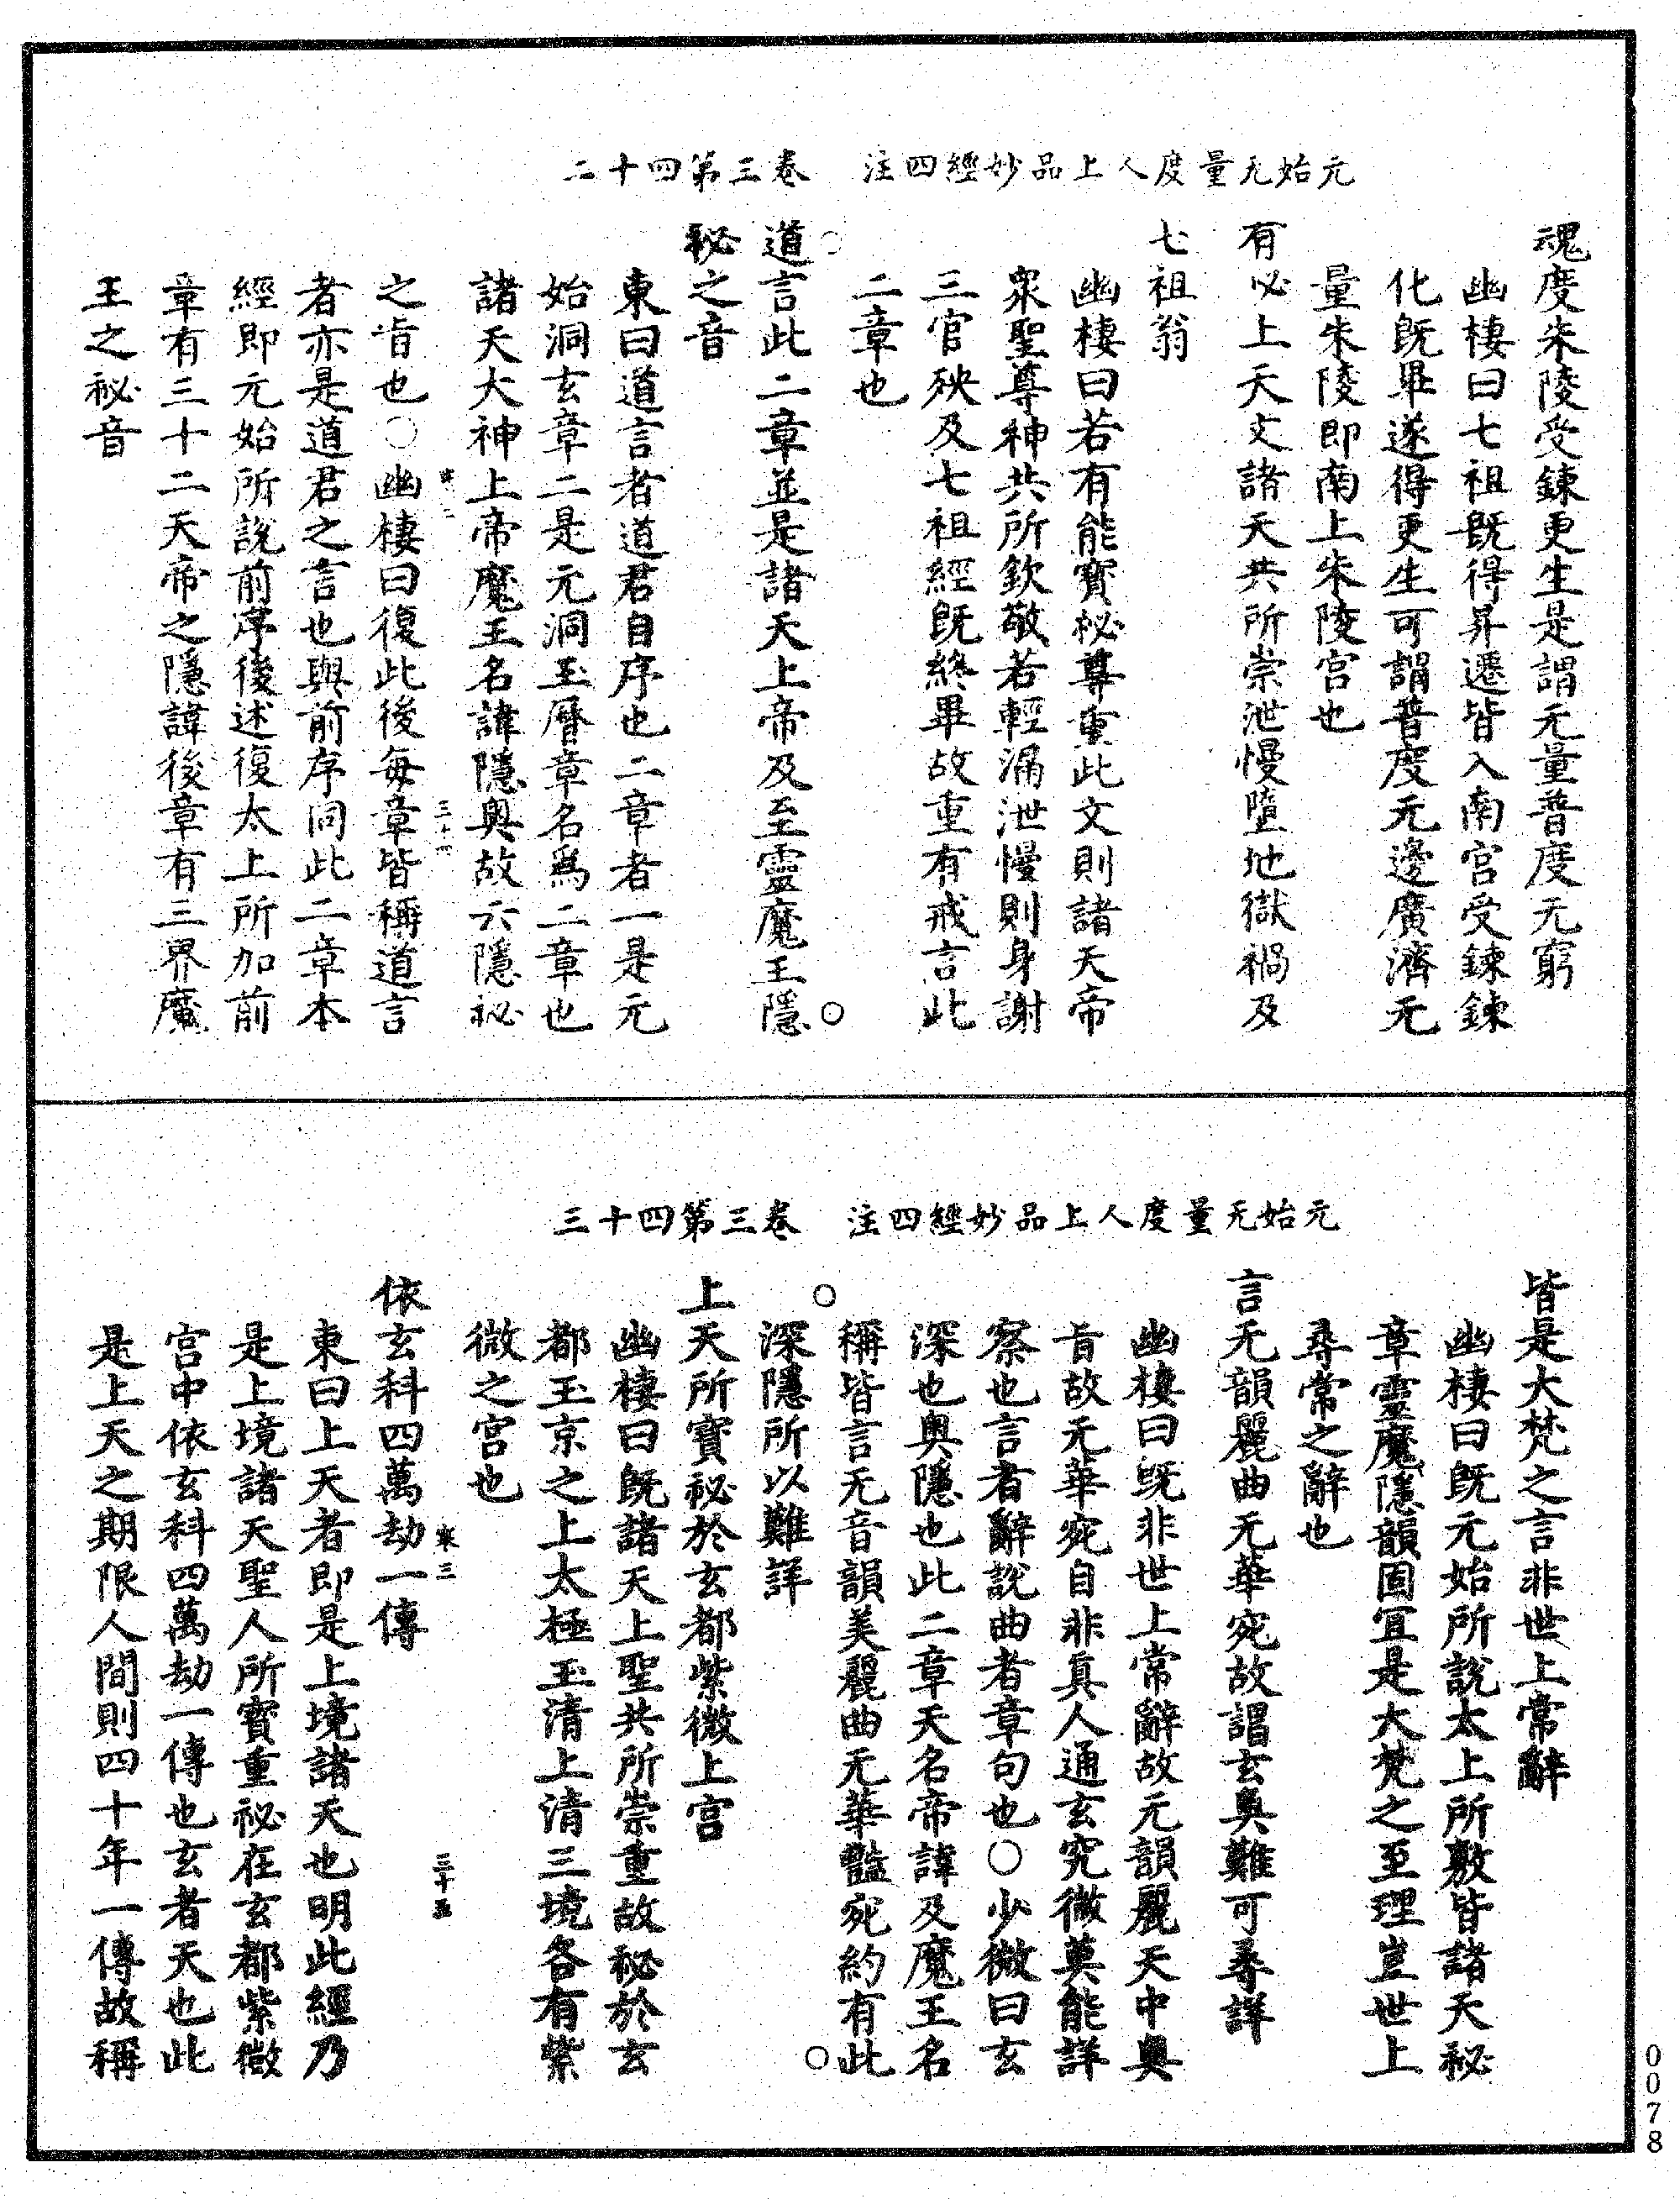 元始无量度人上品妙經四注　卷三第四十二
魂度朱陵受鍊更生是謂无量普度无窮
幽棲曰七祖旣得昇遷皆入南宮受鍊鍊
化旣畢遂得更生可謂普度无邊廣濟无
量朱陵即南上朱陵宮也
有必上天文諸天共所崇泄慢墮地獄禍及
七祖翁
幽棲曰若有能寶祕尊重此文則諸天帝
衆聖尊神共所欽敬若輕漏泄慢則身謝
三官殃及七祖經旣終畢故重有戒言此
二章也
道言此二章並是諸天上帝及至靈魔王隱
祕之音
東曰道言者道君自序也二章者一是元
始洞玄章二是元洞玉曆章名爲二章也
諸天大神上帝魔王名諱隱奧故云隱祕
之旨也○幽棲曰復此後每章皆稱道言
者亦是道君之言也與前序同此二章本
經即元始所說前序後述復太上所加前
章有三十二天帝之隱諱後章有三界魔
王之祕音
三十四
元始无量度人上品妙經四注　卷三第四十三
皆是大梵之言非世上常辭
幽棲曰旣元始所說太上所敷皆諸天祕
章靈魔隱韻固冝是大梵之至理豈世上
尋常之辭也
言无韻麗曲无華宛故謂玄奧難可尋詳
幽棲曰旣非世上常辭故无韻麗天中奧
旨故无華宛自非眞人通玄究微莫能詳
察也言者辭說曲者章句也○少微曰玄
深也奧隱也此二章天名帝諱及魔王名
稱皆言无音韻美麗曲无華豔宛約有此
深隱所以難詳
上天所寶祕於玄都紫微上宮
幽棲曰旣諸天上聖共所崇重故祕於玄
都玉京之上太極玉清上清三境各有紫
微之宮也
依玄科四萬劫一傳
東曰上天者即是上境諸天也明此經乃
是上境諸天聖人所寶重祕在玄都紫微
宮中依玄科四萬劫一傳也玄者天也此
是上天之期限人間則四十年一傳故稱
寒三
三十五
0078